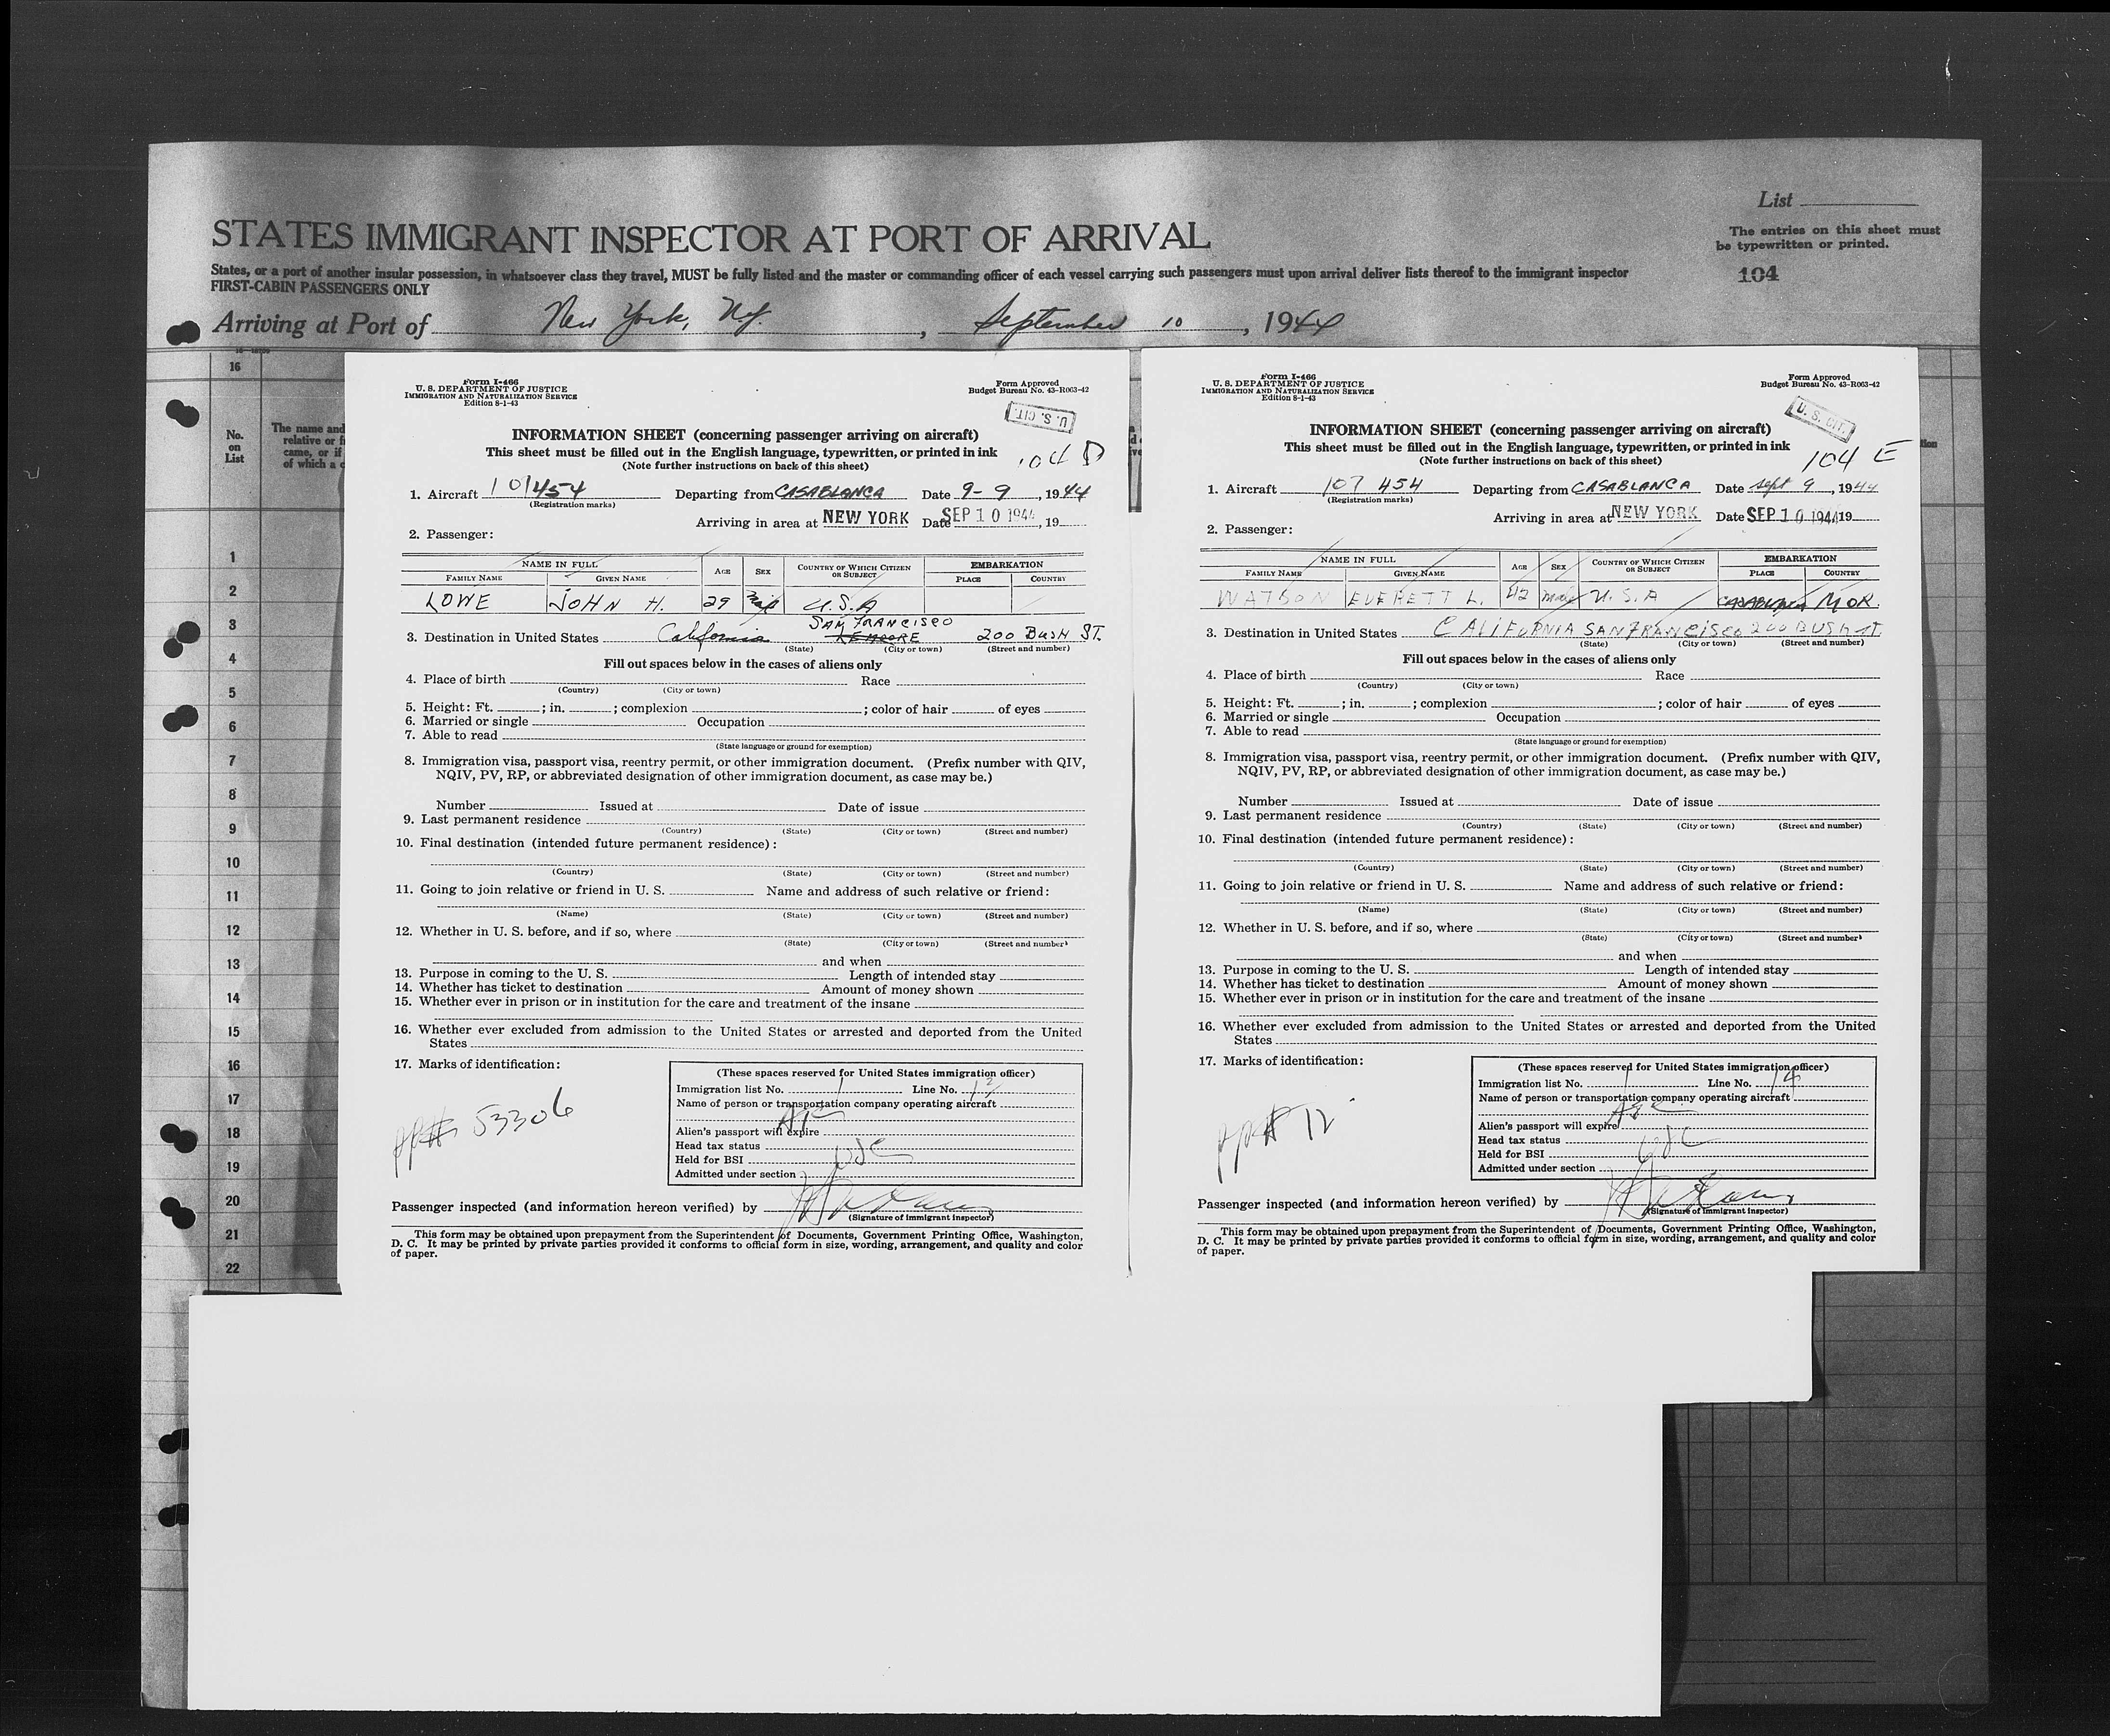 List
STATES IMMIGRANT INSPECTOR AT PORT OF ARRIVAL
The entries on this sheet must
be typewritten or printed.
States, or a port of another insular possession, in whatsoever class they travel, MUST be fully listed and the master or commanding officer of each vessel carrying such passengers must upon arrival deliver lists thereof to the immigrant inspector
FIRST-CABIN PASSENGERS ONLY
104
Arriving at Port of New York, N.Y. , September 10 , 1944
16
No.
on
List
The name and
relative or f
came, or if
of which a c
1
2
3
4
5
6
7
8
9
10
11
12
13
14
15
16
17
18
19
20
21
22
Form I-466
U. S. DEPARTMENT OF JUSTICE
IMMIGRATION AND NATURALIZATION SERVICE
Edition 8-1-43
Form Approved
Budget Bureau No. 43-R063-42
U. S. CIT.
INFORMATION SHEET (concerning passenger arriving on aircraft)
This sheet must be filled out in the English language, typewritten, or printed in ink
(Note further instructions on back of this sheet)
104 D
1. Aircraft 101454 Departing from CASABLANCA Date 9-9 , 1944
(Registration marks)
Arriving in area at NEW YORK Date SEP 10 1944 , 19
2. Passenger:
NAME IN FULL AGE SEX COUNTRY OF WHICH CITIZEN OR SUBJECT EMBARKATION
FAMILY NAME GIVEN NAME PLACE COUNTRY
LOWE JOHN H. 29 U.S.A
SAN FRANCISCO
3. Destination in United States California 200 BUSH ST.
(State) (City or town) (Street and number)
Fill out spaces below in the cases of aliens only
4. Place of birth Race
(Country) (City or town)
5. Height: Ft. ; in. ; complexion ; color of hair of eyes
6. Married or single Occupation
7. Able to read
(State language or ground for exemption)
8. Immigration visa, passport visa, reentry permit, or other immigration document. (Prefix number with QIV,
NQIV, PV, RP, or abbreviated designation of other immigration document, as case may be.)
Number Issued at Date of issue
9. Last permanent residence
(Country) (State) (City or town) (Street and number)
10. Final destination (intended future permanent residence):
(Country) (State) (City or town) (Street and number)
11. Going to join relative or friend in U. S. Name and address of such relative or friend:
(Name) (State) (City or town) (Street and number)
12. Whether in U. S. before, and if so, where
(State) (City or town) (Street and number)
and when
13. Purpose in coming to the U. S. Length of intended stay
14. Whether has ticket to destination Amount of money shown
15. Whether ever in prison or in institution for the care and treatment of the insane
16. Whether ever excluded from admission to the United States or arrested and deported from the United
States
17. Marks of identification:
pp# 53306
(These spaces reserved for United States immigration officer)
Immigration list No. 1 Line No.
Name of person or transportation company operating aircraft
Alien's passport will expire
Head tax status
Held for BSI
Admitted under section
Passenger inspected (and information hereon verified) by
(Signature of immigrant inspector)
This form may be obtained upon prepayment from the Superintendent of Documents, Government Printing Office, Washington,
D. C. It may be printed by private parties provided it conforms to official form in size, wording, arrangement, and quality and color
of paper.
Form I-466
U. S. DEPARTMENT OF JUSTICE
IMMIGRATION AND NATURALIZATION SERVICE
Edition 8-1-43
Form Approved
Budget Bureau No. 43-R063-42
U. S. CIT.
INFORMATION SHEET (concerning passenger arriving on aircraft)
This sheet must be filled out in the English language, typewritten, or printed in ink
(Note further instructions on back of this sheet)
104 E
1. Aircraft 107 454 Departing from CASABLANCA Date Sept 9 , 1944
(Registration marks)
Arriving in area at NEW YORK Date SEP 10 1944 , 19
2. Passenger:
NAME IN FULL AGE SEX COUNTRY OF WHICH CITIZEN OR SUBJECT EMBARKATION
FAMILY NAME GIVEN NAME PLACE COUNTRY
WATSON EVERETT L. 42 male U.S.A CASABLANCA MOR.
3. Destination in United States CALIFORNIA SAN FRANCISCO 200 BUSH ST.
(State) (City or town) (Street and number)
Fill out spaces below in the cases of aliens only
4. Place of birth Race
(Country) (City or town)
5. Height: Ft. ; in. ; complexion ; color of hair of eyes
6. Married or single Occupation
7. Able to read
(State language or ground for exemption)
8. Immigration visa, passport visa, reentry permit, or other immigration document. (Prefix number with QIV,
NQIV, PV, RP, or abbreviated designation of other immigration document, as case may be.)
Number Issued at Date of issue
9. Last permanent residence
(Country) (State) (City or town) (Street and number)
10. Final destination (intended future permanent residence):
(Country) (State) (City or town) (Street and number)
11. Going to join relative or friend in U. S. Name and address of such relative or friend:
(Name) (State) (City or town) (Street and number)
12. Whether in U. S. before, and if so, where
(State) (City or town) (Street and number)
and when
13. Purpose in coming to the U. S. Length of intended stay
14. Whether has ticket to destination Amount of money shown
15. Whether ever in prison or in institution for the care and treatment of the insane
16. Whether ever excluded from admission to the United States or arrested and deported from the United
States
17. Marks of identification:
pp# 12
(These spaces reserved for United States immigration officer)
Immigration list No. 1 Line No. 14
Name of person or transportation company operating aircraft
Alien's passport will expire
Head tax status
Held for BSI
Admitted under section
Passenger inspected (and information hereon verified) by
(Signature of immigrant inspector)
This form may be obtained upon prepayment from the Superintendent of Documents, Government Printing Office, Washington,
D. C. It may be printed by private parties provided it conforms to official form in size, wording, arrangement, and quality and color
of paper.